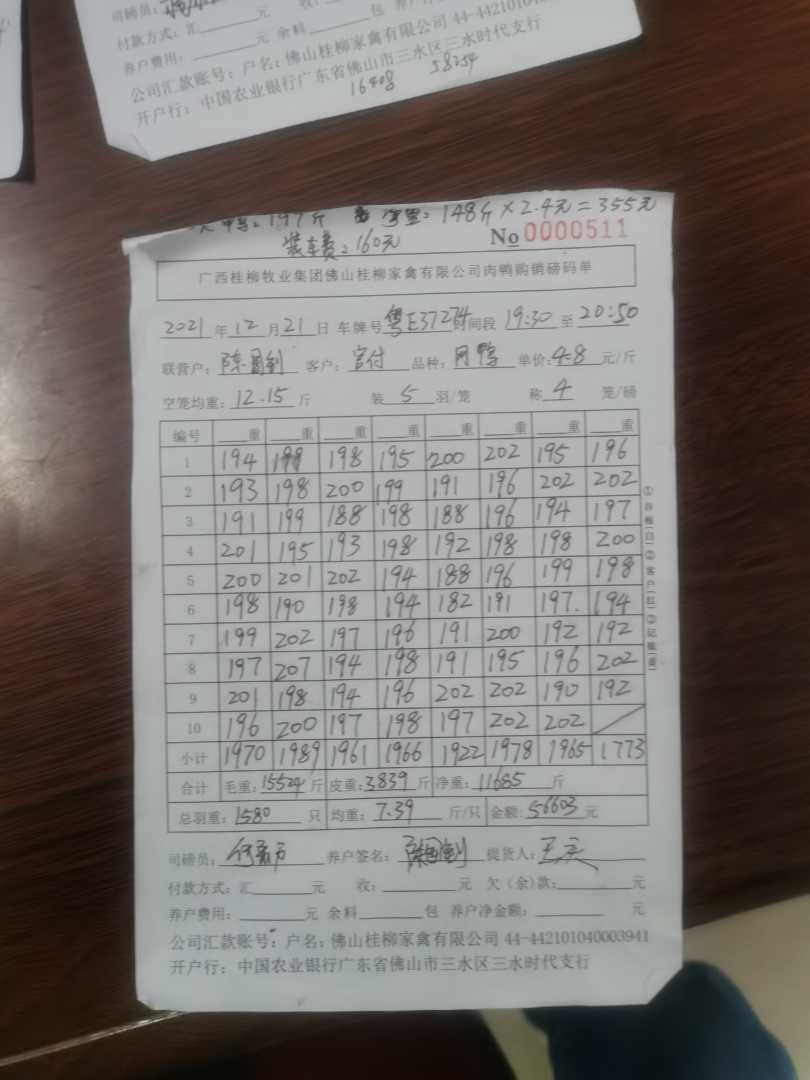 司磅员:
付款方式:汇____元 收:
养户费用:____元 余料____包 养户净金额
公司汇款账号:户名:佛山桂柳家禽有限公司 44-44210104
开户行:中国农业银行广东省佛山市三水区三水时代支行
16408 58254
197斤 148斤×2.4元=355元
装车费:160元
No 0000511
广西桂柳牧业集团佛山桂柳家禽有限公司肉鸭购销磅码单
2021年12月21日 车牌号粤E37274时间段19:30至20:50
联营户: 客户: 品种: 单价:4.8元/斤
空笼均重:12.15斤 装5羽/笼 称4笼/磅
编号 ____重 ____重 ____重 ____重 ____重 ____重 ____重 ____重
1 194 199 198 195 200 202 195 196
2 193 198 200 199 191 196 202 202
3 191 199 188 198 188 196 194 197
4 201 195 193 198 192 198 198 200
5 200 201 202 194 188 196 199 198
6 198 190 198 194 182 191 197. 194
7 199 202 197 196 191 200 192 192
8 197 207 194 198 191 195 196 202
9 201 198 194 196 202 202 190 192
10 196 200 197 198 197 202 202
小计 1970 1989 1961 1966 1922 1978 1965 1773
合计 毛重:15524斤 皮重:3839斤 净重:11685斤
总羽重:1580只 均重:7.39斤/只 金额:56603元
司磅员: 养户签名: 提货人:
付款方式:汇____元 收:____元 欠(余)款:____元
养户费用:____元 余料____包 养户净金额:____元
公司汇款账号:户名:佛山桂柳家禽有限公司 44-442101040003941
开户行:中国农业银行广东省佛山市三水区三水时代支行
①存根(白)②客户(红)③记账(黄)